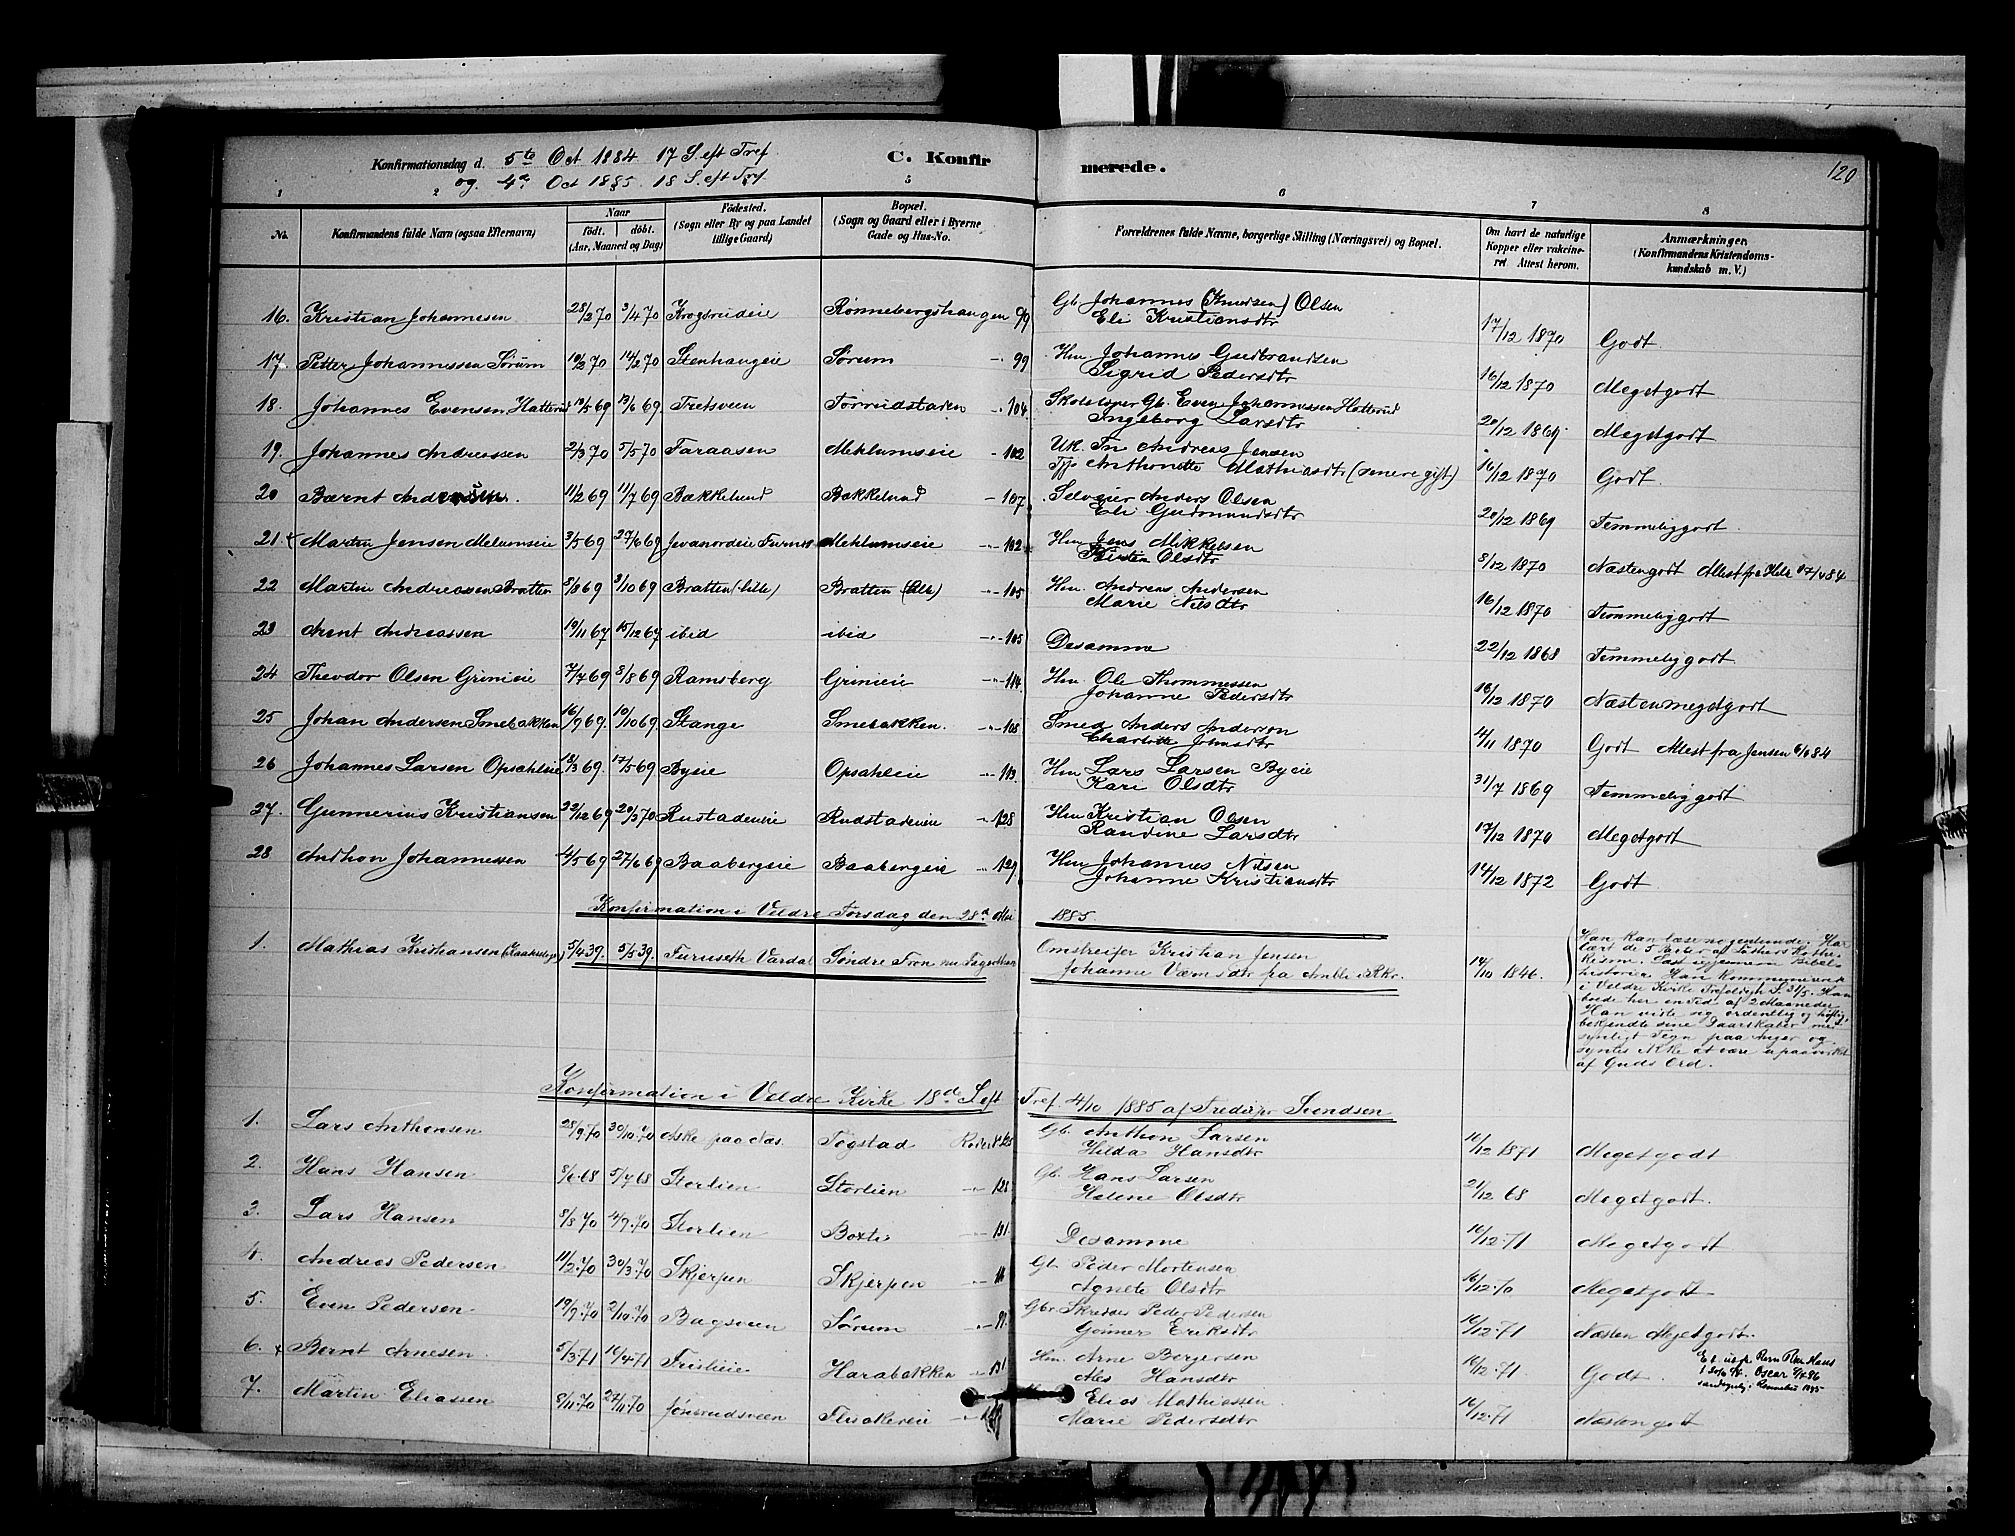 Konfirmationsdag d. 5te Oct 1884 17 S. eft Tref.
og 4de Oct 1885. 18 S. eft Tref.
C. Konfirmerede.
120
1 2 5 6 7 8
No. Konfirmandens fulde Navn (ogsaa Efternavn) Naar født. døbt. (Aar, Maaned og Dag) Födested. (Sogn eller By og paa Landet tillige Gaard) Bopæl. (Sogn og Gaard eller i Byerne Gade og Hus-No. Forældrenes fulde Navne, borgerlige Stilling (Næringsvei) og Bopæl. Om havt de naturlige Kopper eller vakcineret Attest herom. Anmærkninger (Konfirmandens Kristendomskundskab m. V.)
16. Kristian Johannesen 28/2 70 3/4 70 Krogsrudeie Rønnebergshaugen 99 Gb. Johannes (Knudsen) Olsen
Eli Kristiansdtr 17/12 1870 Godt
17. Petter Johannessen Sørum 10/2 70 14/2 70 Stenhaugeie Sørum 99 Hm. Johannes Gudbrandsen
Sigrid Pedersdtr 16/12 1870 Megetgodt
18. Johannes Evensen Hatterud 19/5 69 13/6 69 Tretsveen Torrudstaden 104 Gb. Even Johannessen Hatterud
Ingeborg Larsdtr 20/12 1869 Megetgodt
19. Johannes Andreassen 2/3 70 5/5 70 Faraasen Mehlumseie 102 Uk. Andreas Jensen
Anthonette Mathiasdtr (senere gift) 16/12 1870 Godt.
20 Bærnt Andersen 11/2 69 11/7 69 Bækkelund Bakkelund 107 Selveier Anders Olsen
Eli Gudmundsdtr 20/12 1869 Temmeliggodt.
21. Martin Jensen Melumseie 3/5 69 27/6 69 Jevanordeie Furnes Mehlumseie 102 Hm Jens Mikkelsen
Kirstin Olsdtr 8/12 1870 Næstengodt
22 Martin Andreassen Bratten 8/8 69 3/10 69 Bratten (lille) Bratten (lille) 105 Hm. Andreas Andersen
Marie Nilsdtr 16/12 1870 Temmeliggodt
23 Arent Andreassen 19/11 67 15/12 67 ibid ibid 105 Desamme 22/12 1868 Temmeliggodt
24 Theodor Olsen Grinieie 7/7 69 8/8 69 Ramsberg Grinieie 114 Hm. Ole Thommessen
Johanne Pedersdtr 16/12 1870 Næstenmegetgodt
25 Johan Andersen Smebakken 16/9 69 10/10 69 Stange Smebakken. 108 Smed Anders Anderson
Charlotte Johnsdtr 4/11 1870 Godt Attest fra Jensen 6/10 84
26 Johannes Larsen Opsahleie 18/3 69. 17/5 69 Byeie Opsahleie 113. Hm Lars Larsen Byeie
Kari Olsdtr 31/7 1869 Temmeliggodt
27. Gunnerius Kristiansen 22/12 69 20/2 70 Rustadeneie Rudstadeneie 128 Hm Kristian Olsen
Randine Larsdtr 17/12 1870 Megetgodt
28 Andhon Johannessen 4/5 69 27/6 69 Baabergeie Baabergeie 129 Hm Johannes Nilsen
Johanne Kristiansdtr 14/12 1872 Godt
Konfirmation i Veldre Torsdag den 28de Mai 1885.
1. Mathias Kristiansen 5/4 39. 5/5 39. Furuseth Vardal Søndre Fron Omstreifer Kristian Jensen
Johanne 14/10 1846.
Han kan læse nogenlunde. Har
lært de 5 Parter af Luthers Kathe-
kisme. Læst igjennem Bibel-
historien. Han kommunicerede
i Veldre Kirke 31/5. Han
boede her en Tid af 2 Maaneder
Han viste sig ordentlig og høflig,
bekjendte sine Daarskaber med
synligt Tegn paa Anger og
syntes ikke at være upaavirket
af Guds Ord.
Konfirmation i Veldre Kirke 18de S. eft Tref. 4/10 1885 af Svendsen
1. Lars Anthonsen 28/9 70 30/10 70 Aske paa Næs. Togstad 128 Gb. Anthon Larsen
Hilda Hansdtr 16/12 1871 Megetgodt
2. Hans Hansen 8/6 68 5/7 68 Storlien Storlien 128 Gb. Hans Larsen
Helene Olsdtr 21/12 68 Megetgodt.
3. Lars Hansen 8/8 70 4/9 70 Storlien 131 Desamme 16/12 71 Megetgodt
4. Andreas Pedersen 11/2 70 30/3 70 Skjerpen Skjerpen Gb. Peder Mortensen
Agnete Olsdtr 16/12 70 Megetgodt
5. Even Pedersen 19/9 70 2/10 70 Bagsveen Sørum Skredder Peder Pedersen
Gunner Eriksdtr 16/12 71 Næsten Megetgodt.
6. Bernt Arnesen 5/3 71 10/4 71 Tristieie Harabakken 131 Hm. Arne Bergersen
Ales Hansdtr 16/12 71 Godt.
7. Martin Eliassen 8/11 70 27/11 70 Fluakereie Elias Mathiassen
Marie Pedersdtr 16/12 71 Næstengodt